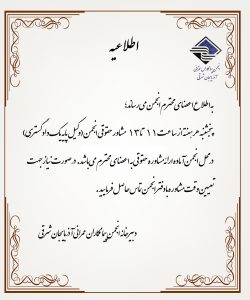 اطلاعیه
انجمن پیمانکاران عمرانی
آذربایجان شرقی
به اطلاع اعضای محترم انجمن می رساند؛
پنجشنبه هر هفته از ساعت ۱۱ تا ۱۳ مشاور حقوقی انجمن (وکیل پایه یک دادگستری)
در محل انجمن آماده ارائه مشاوره حقوقی به اعضای محترم می باشد. در صورت نیاز جهت
تعیین وقت مشاوره با دفتر انجمن تماس حاصل فرمایید.
دبیرخانه انجمن پیمانکاران عمرانی آذربایجان شرقی